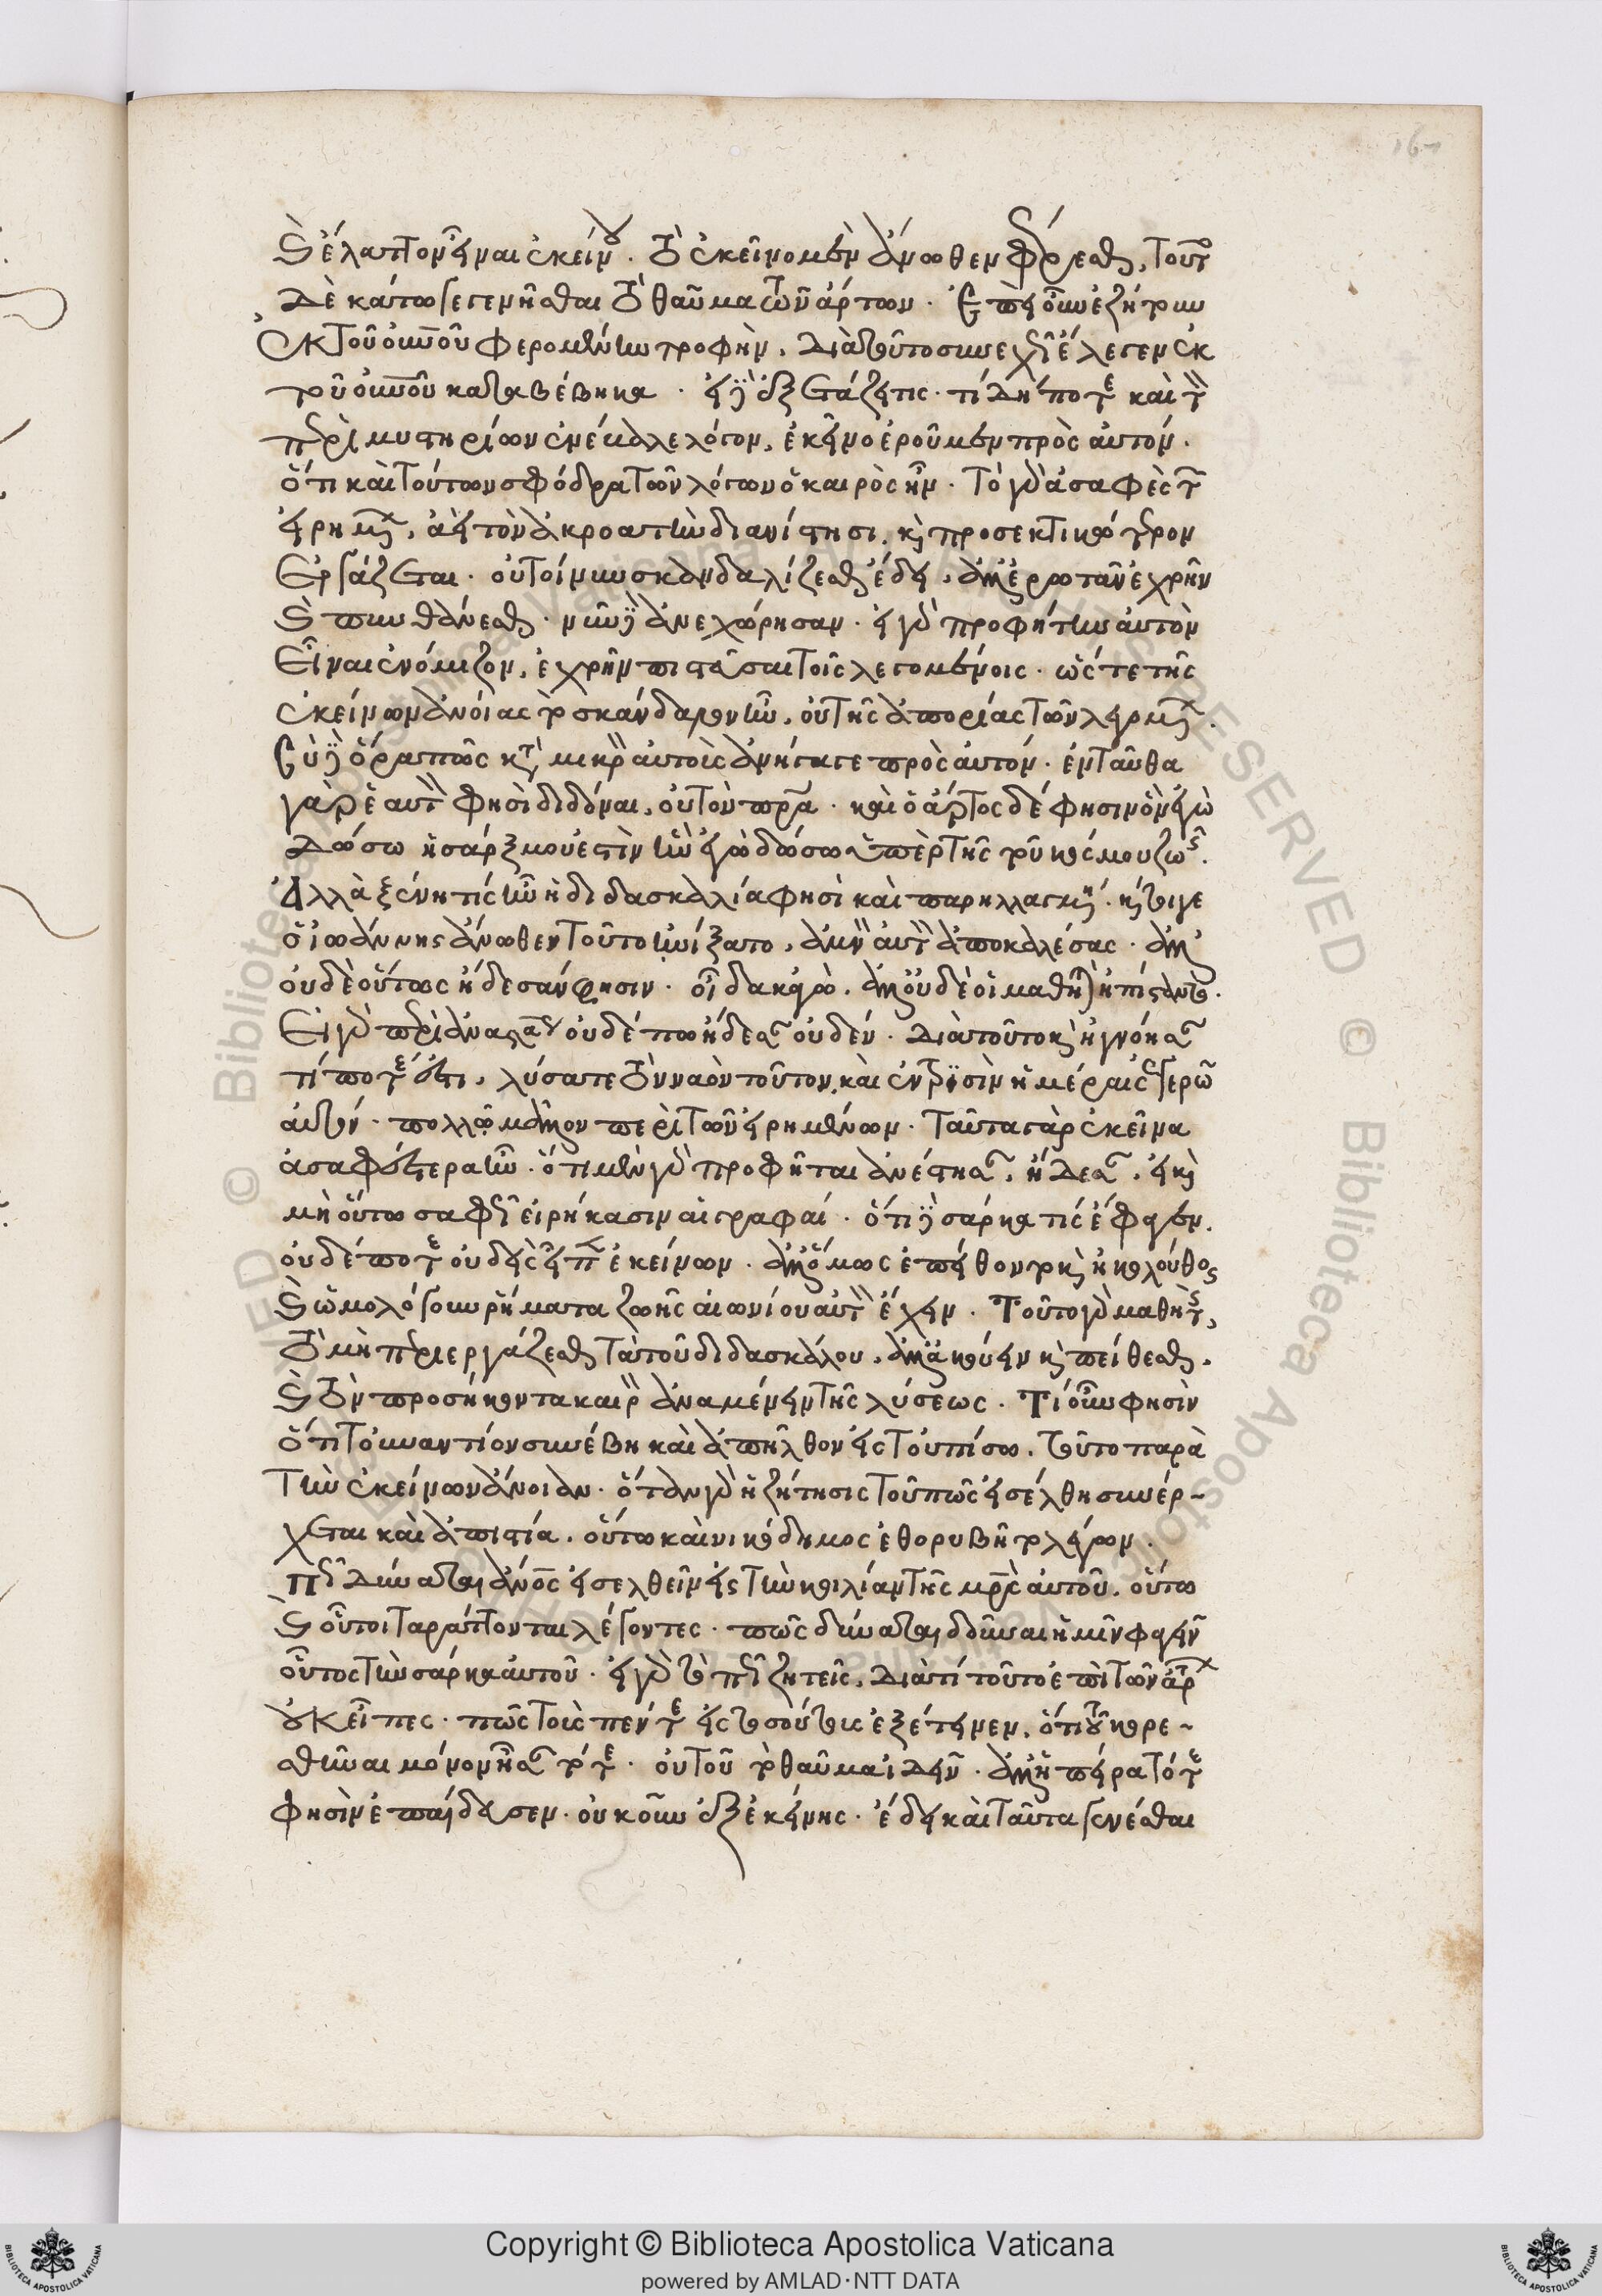 καὶ ἔλαττον εἶναι ἐκείνου. τὸ ἐκεῖνο μὲν ἄνωθεν φέρεσθαι, τοῦτο
δὲ κάτω γεγενῆσθαι τὸ θαῦμα τῶν ἄρτων. Ἐπεὶ οὖν ἐζήτουν
ἐκ τοῦ οὐνοῦ φερομένην τροφὴν, διὰ τοῦτο συνεχῶς ἔλεγεν ἐκ
τοῦ οὐνοῦ καταβέβηκα. εἰ δὲ ἐξετάζει τις. τί δήποτε καὶ τὸν
περὶ μυστηρίων ἐνέβαλε λόγον, ἐκεῖνο ἐροῦμεν πρὸς αὐτόν.
ὅτι καὶ τούτων σφόδρα τῶν λόγων ὁ καιρὸς ἦν. Τὸ γὰρ ἀσαφὲς τῶν
εἰρημένων, ἀεὶ τὸν ἀκροατὴν διανίστησι. καὶ προσεκτικώτερον
ἐργάζεται. οὐ τοίνυν σκανδαλίζεσθαι ἔδει, ἀλλ' ἐρωτᾶν ἐχρῆν
καὶ πυνθάνεσθαι. νῦν δὲ ἀνεχώρησαν. εἰ γὰρ προφήτην αὐτὸν
εἶναι ἐνόμιζον, ἐχρῆν πιστεῦσαι τοῖς λεγομένοις. ὥστε τῆς
ἐκείνων ἀνοίας τὸ σκάνδαλον ἦν, οὐ τῆς ἀπορίας τῶν λεγομένων.
Σὺ δὲ ὅρα πῶς κατὰ μικρὸν αὐτοὺς ἀνήγαγε πρὸς αὐτόν. ἐνταῦθα
γὰρ ἑαυτὸν φησὶ διδόναι, οὐ τὸν πρα. καὶ ὁ ἄρτος δέ φησιν ὃν ἐγὼ
δώσω ἡ σάρξ μου ἐστὶν ἣν ἐγὼ δώσω ὑπὲρ τῆς τοῦ κόσμου ζωῆς.
Ἀλλὰ ξένη τίς ἦν ἡ διδασκαλία φησὶ καὶ παρηλλαγμένη. καίτοιγε
ὁ ἰωάννης ἄνωθεν τοῦτο ᾐνίξατο, ἀμνὸν αὐτὸν ἀποκαλέσας. ἀλλ'
οὐδὲ οὕτως ᾔδεσάν φησιν. οἶδα κἀγώ. ἀλλ' οὐδὲ οἱ μαθηταὶ ἠπίσταντο.
Εἰ γὰρ περὶ ἀναστάσεως οὐδέπω ᾔδεσαν οὐδέν. διὰ τοῦτο καὶ ἠγνόησαν
τί ποτέ ἐστι, λύσατε τὸν ναὸν τοῦτον, καὶ ἐν τρισὶν ἡμέραις ἐγερῶ
αὐτόν. πολλῷ μᾶλλον περὶ τῶν εἰρημένων. Ταῦτα γὰρ ἐκεῖνα
ἀσαφέστερα ἦν. ὅτι μὲν γὰρ προφῆται ἀνέστησαν, ᾔδεσαν, εἰ καὶ
μὴ οὕτω σαφῶς εἰρήκασιν αἱ γραφαί. ὅτι δὲ σάρκα τίς ἔφαγεν.
οὐδέποτε οὐδεὶς εἶπεν ἐκείνων. ἀλλ' ὅμως ἐπείθοντο καὶ ἠκολούθουν
καὶ ὡμολόγουν ῥήματα ζωῆς αἰωνίου αὐτὸν ἔχειν. Τοῦτο γὰρ μαθητοῦ,
τὸ μὴ περιεργάζεσθαι τὰ τοῦ διδασκάλου. ἀλλὰ ἀκούειν καὶ πείθεσθαι.
καὶ τὸν προσήκοντα καιρὸν ἀναμένειν τῆς λύσεως. Τί οὖν φησὶν
ὅτι τοὐναντίον συνέβη καὶ ἀπῆλθον εἰς τοὐπίσω. τοῦτο παρὰ
τὴν ἐκείνων ἄνοιαν. ὅταν γὰρ ἡ ζήτησις τοῦ πῶς εἰσέλθη συνέρ-
χεται καὶ ἀπιστία. οὕτω καὶ νικόδημος ἐθορυβεῖτο λέγων.
πῶς δύναται ἄνος εἰσελθεῖν εἰς τὴν κοιλίαν τῆς μρς αὐτοῦ. οὕτω
καὶ οὗτοι ταράττονται λέγοντες. πῶς δύναται δοῦναι ἡμῖν φαγεῖν
οὗτος τὴν σάρκα αὐτοῦ. εἰ γὰρ τὸ πῶς ζητεῖς, διατί τοῦτο ἐπὶ τῶν ἄρτων
οὐκ εἶπες. πῶς τοὺς πέντε εἰς τοσούτους ἐξέτεινεν. ὅτι τοῦ κορε-
σθῆναι μόνον ἦσαν τότε. οὐ τοῦ τὸ θαῦμα ἰδεῖν. ἀλλ' ἡ πεῖρα τότε
φησὶν ἐπαίδευσεν. οὐκοῦν ἐξ ἐκείνης. ἔδει καὶ ταῦτα γενέσθαι
Copyright © Biblioteca Apostolica Vaticana
powered by AMLAD·NTT DATA